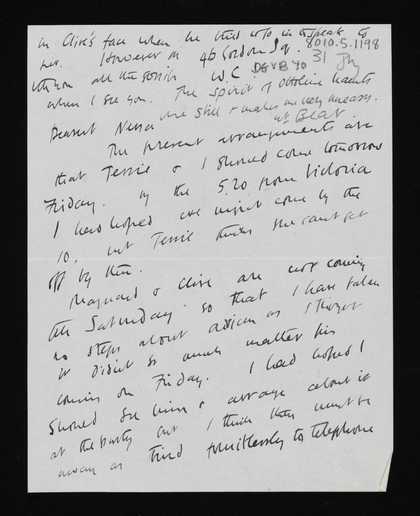 in Clive's face when he tried to speak to
her. However
46 Gordon Sq.
you all the gossip W.C
8010.5.1198
31
when I see you. The spirit of Ottoline haunts
me still & makes me very uneasy.
Dearest Nessa
The present arrangements are
that Jessie & I should come tomorrow
Friday. by the 5.20 from Victoria
I had hoped we might come by the
10. but Jessie thinks she cant get
off by then.
Maynard & Clive are not coming
till Saturday. so that I have taken
no steps about as I thought
it didn't so much matter his
coming on Friday. I had hoped I
should see him & arrange about it
at the party but I think they must be
away as I tried fruitlessly to telephone